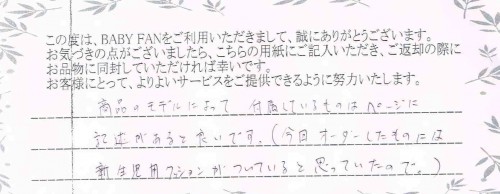 この度は、BABY FANをご利用いただきまして、誠にありがとうございます。
お気づきの点がございましたら、こちらの用紙にご記入いただき、ご返却の際に
お品物に同封していただければ幸いです。
お客様にとって、よりよいサービスをご提供できるように努力いたします。
商品のモデルによって 付属しているものはページに
記述があると良いです。(今回オーダーしたものには
新生児用クッションがついていると思っていたので。)